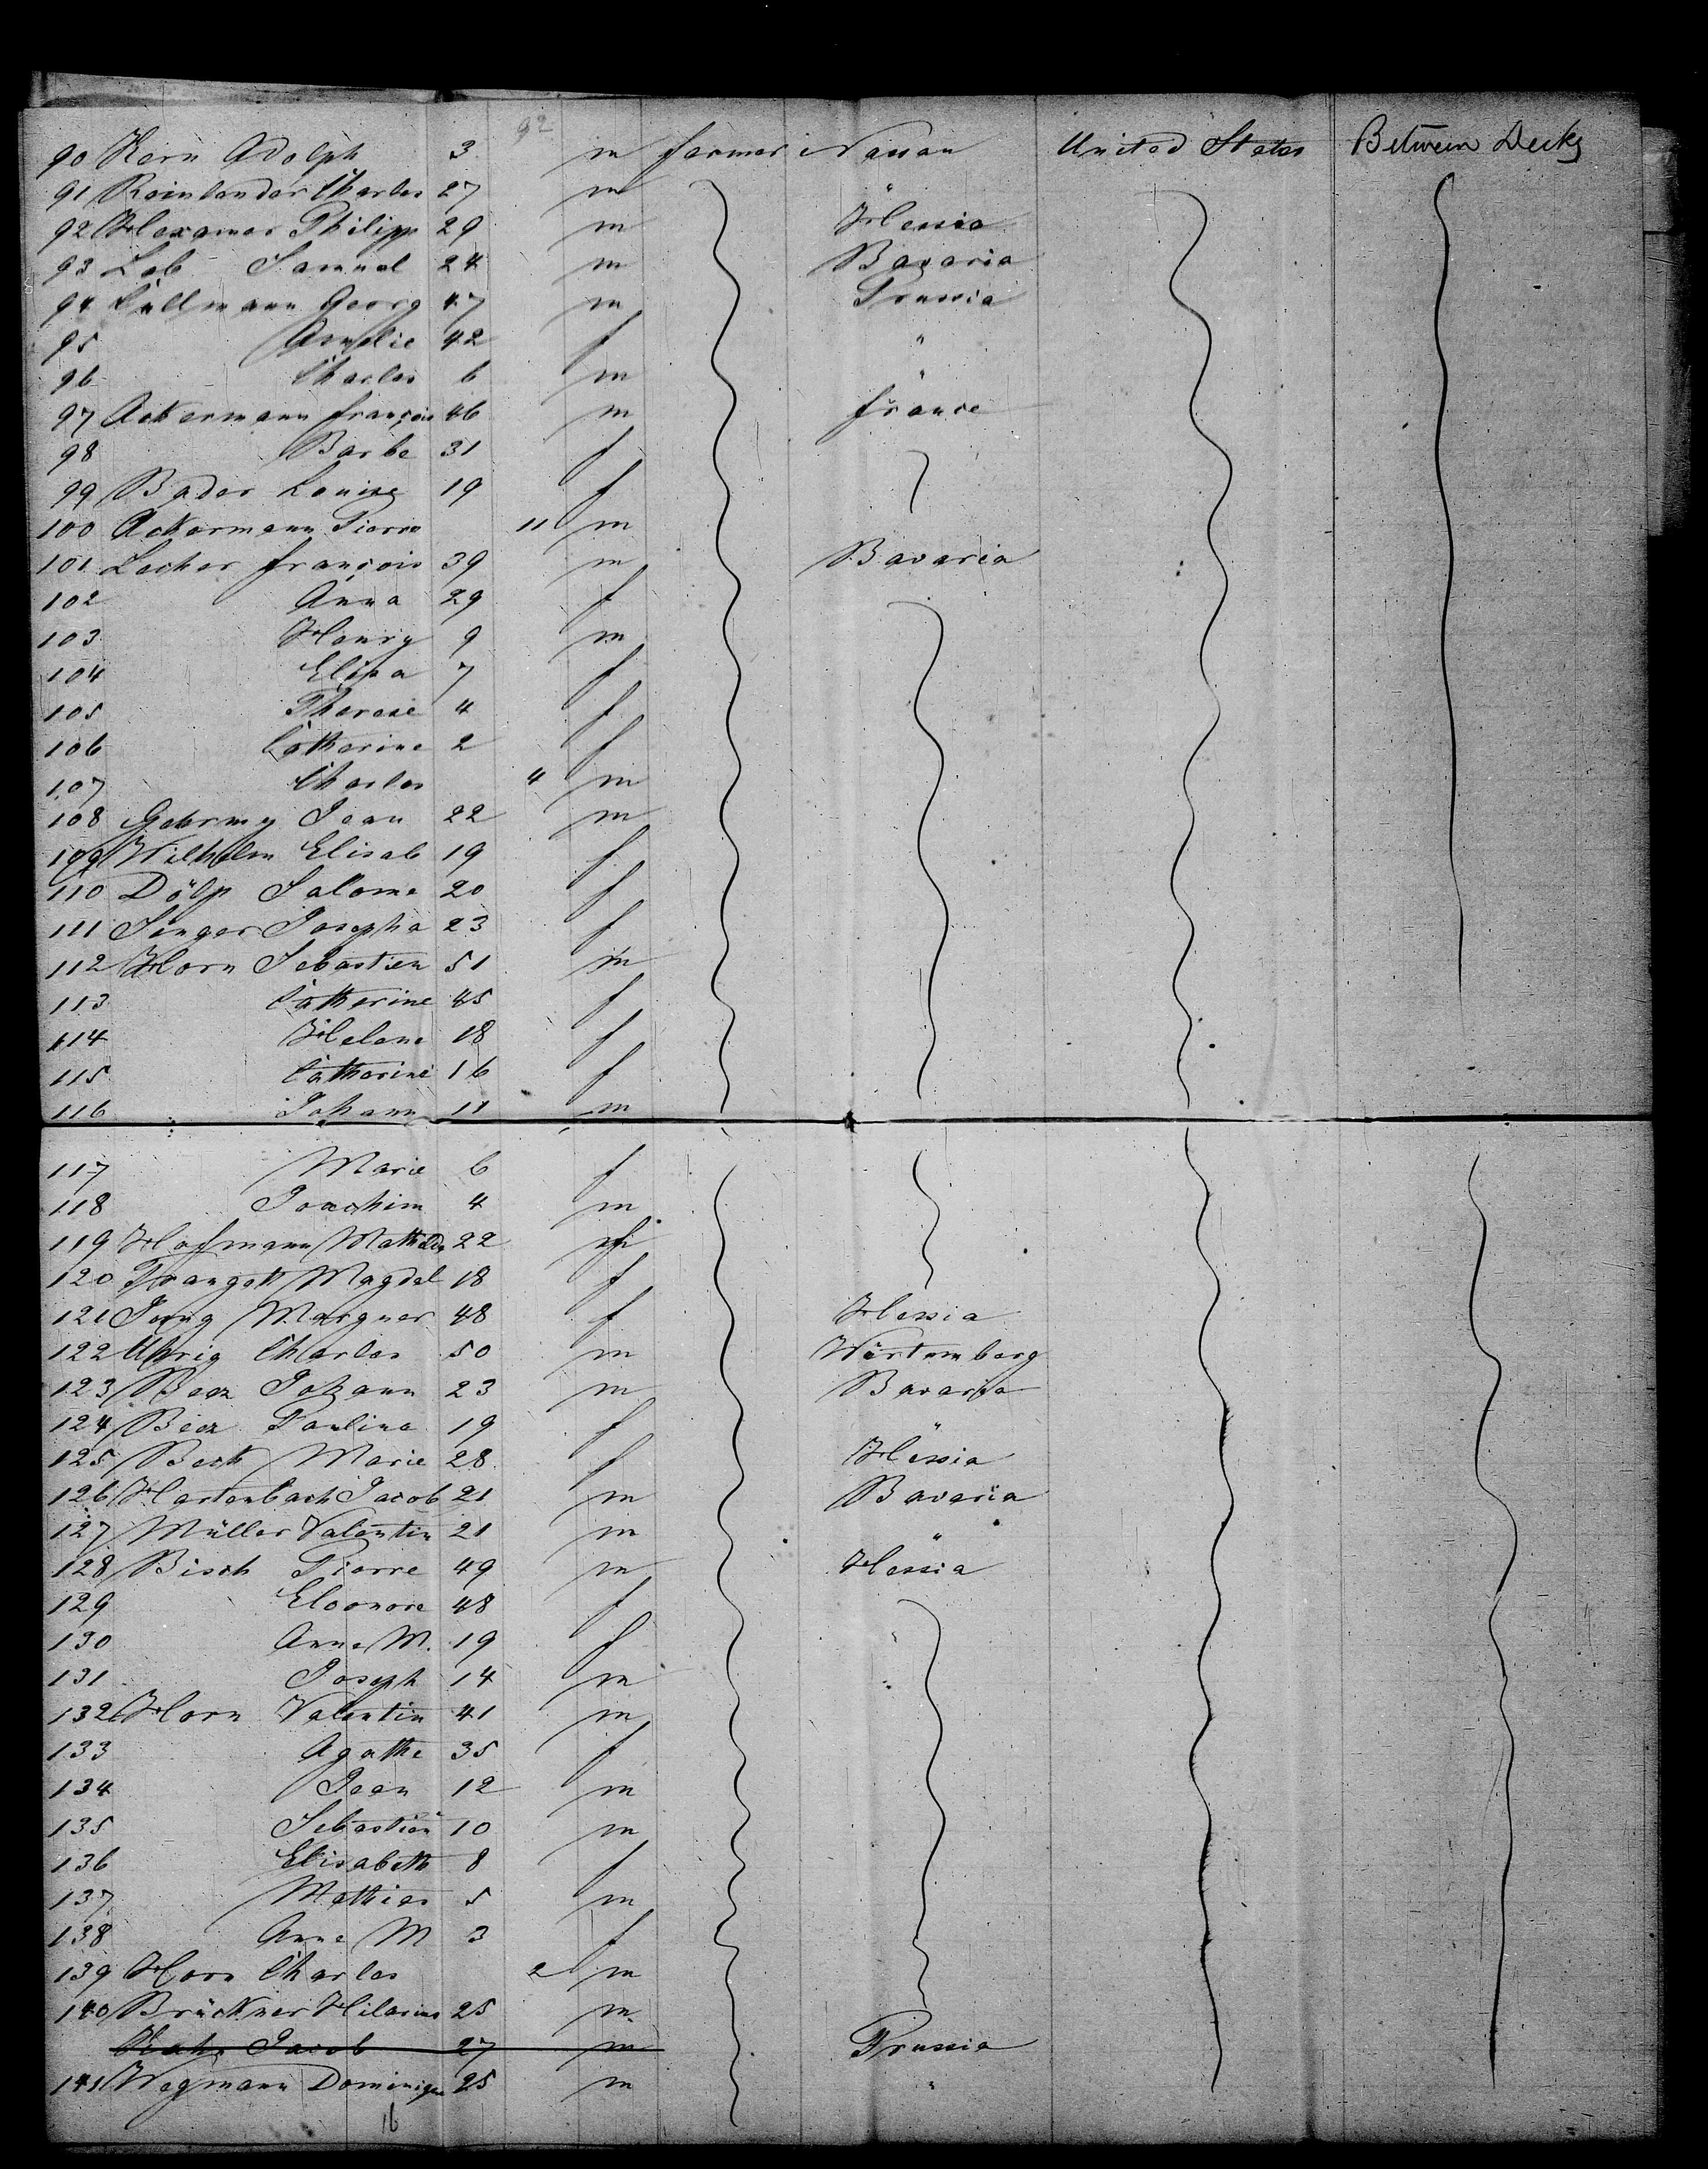 92
90 Korn Adolph 3 m farmer Nassau United States Between Decks
91 Reinlander Charles 27 m "
92 Hexamer Philipp 29 m Hessia
93 Lob Samuel 24 m Bavaria
94 Cullmann Georg 47 m Prussia
95 Amelie 42 f "
96 Charles 6 m "
97 Ackermann françois 46 m france
98 Barbe 31 f
99 Bader Louise 19 f
100 Ackermann Pierre 11 m
101 Lecher françois 39 m Bavaria
102 Anna 29 f
103 Henry 9 m
104 Elisa 7 f
105 Therese 4 f
106 Catherine 2 f
107 Charles 4 m
108 Jean 22 m
109 Wilhelm Elisab 19 f
110 Dölp Salome 20 f
111 Singer Josepha 23 f
112 Horn Sebastien 51 m
113 Catherine 45 f
114 Helene 18 f
115 Catherine 16 f
116 Johann 11 m
117 Marie 6 f
118 Joachim 4 m
119 Hofmann 22
120 Magdal 18 f
121 Jung 48 f Hessia
122 Uhrig Charles 50 m Würtemberg
123 Beez Johann 23 m Bavaria
124 Beez Paulina 19 f "
125 Beck Marie 28 f Hessia
126 Hartenbach Jacob 21 m Bavaria
127 Müller Valentin 21 m "
128 Bisch Pierre 49 m Hessia
129 Eleonore 48 f
130 Anne M. 19 f
131 Joseph 14 m
132 Horn Valentin 41 m
133 Agathe 35 f
134 Jean 12 m
135 Sebastien 10 m
136 Elisabeth 8 f
137 Mathias 5 m
138 Anne M 3 f
139 Horn Charles 2 m
140 Brückner Hilarius 25 m
Jacob 27 m Prussia
141 Wegmann Dominique 25 m "
16